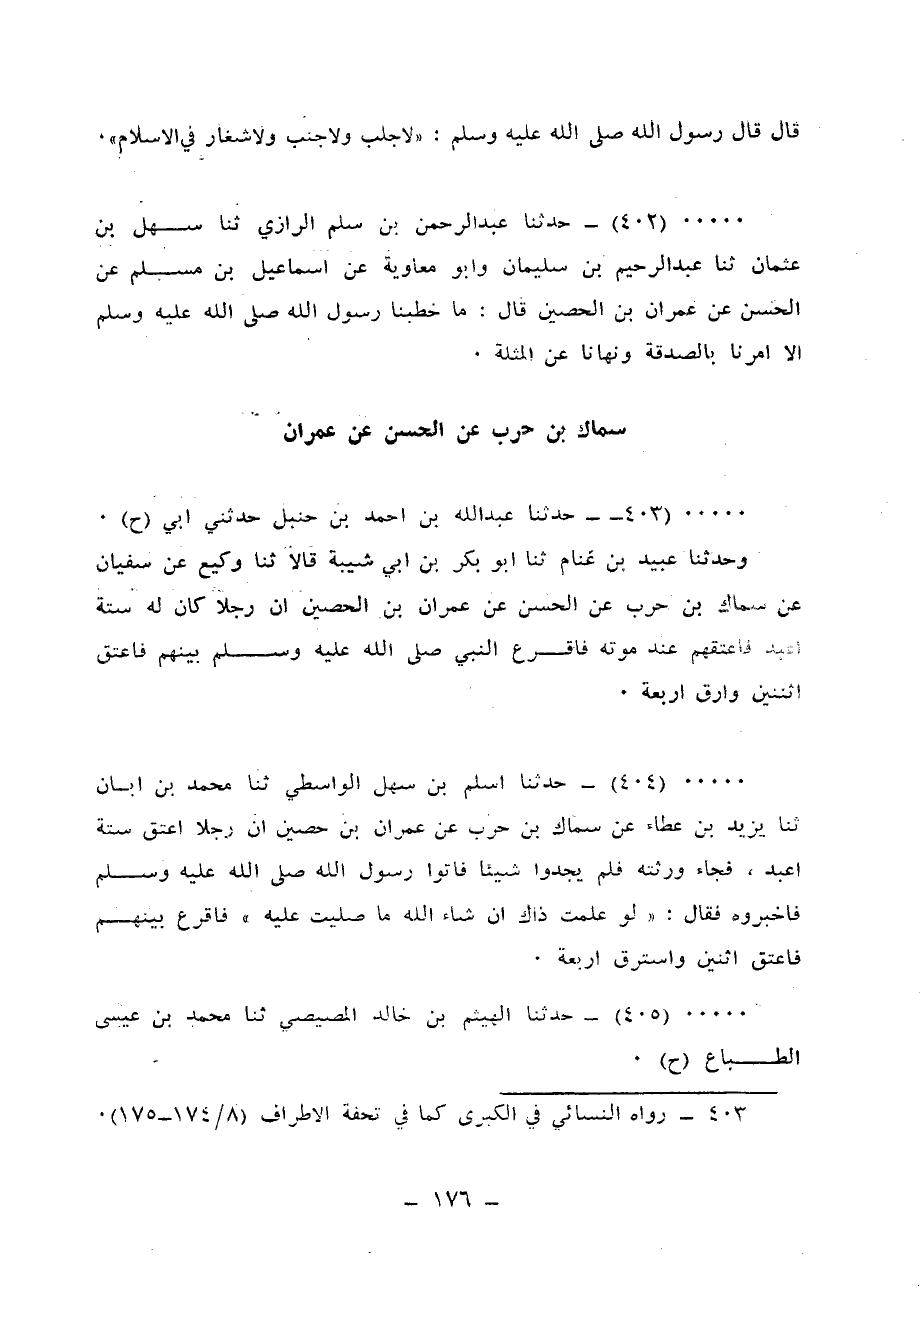 قال قال رسول الله صلى الله عليه وسلم : «لاجلب ولاجنب ولاشغار في الاسلام» ٠
٠٠٠٠٠ (٤٠٢) ــ حدثنا عبدالرحمن بن سلم الرازي ثنا ســهل بن
عثمان ثنا عبدالرحيم بن سليمان وابو معاوية عن اسماعيل بن مســلم عن
الحسن عن عمران بن الحصين قال : ما خطبنا رسول الله صلى الله عليه وسلم
الا امرنا بالصدقة ونهانا عن المثلة ٠
سماك بن حرب عن الحسن عن عمران
٠٠٠٠٠ (٤٠٣ــ ــ حدثنا عبدالله بن احمد بن حنبل حدثني ابي (ح) ٠
وحدثنا عبيد بن غنام ثنا ابو بكر بن ابي شيبة قالا ثنا وكيع عن سفيان
عن سماك بن حرب عن الحسن عن عمران بن الحصين ان رجلا كان له ستة
اعبد فاعتقهم عند موته فاقــرع النبي صلى الله عليه وســلم بينهم فاعتق
اثنين وارق اربعة ٠
٠٠٠٠٠ (٤٠٤) ــ حدثنا اسلم بن سهل الواسطي ثنا محمد بن ابــان
ثنا يزيد بن عطاء عن سماك بن حرب عن عمران بن حصين ان رجلا اعتق ستة
اعبد ، فجاء ورثته فلم يجدوا شيئا فاتوا رسول الله صلى الله عليه وســلم
فاخبروه فقال : « لو علمت ذاك ان شاء الله ما صليت عليه » فاقرع بينهــم
فاعتق اثنين واسترق اربعة ٠
٠٠٠٠٠ (٤٠٥) ــ حدثنا الهيثم بن خالد المصيصي ثنا محمد بن عيسى
الطــباع (ح) ٠
٤٠٣ ــ رواه النسائي في الكبرى كما في تحفة الاطراف (٨/١٧٤ــ١٧٥) ٠
ــ ١٧٦ ــ